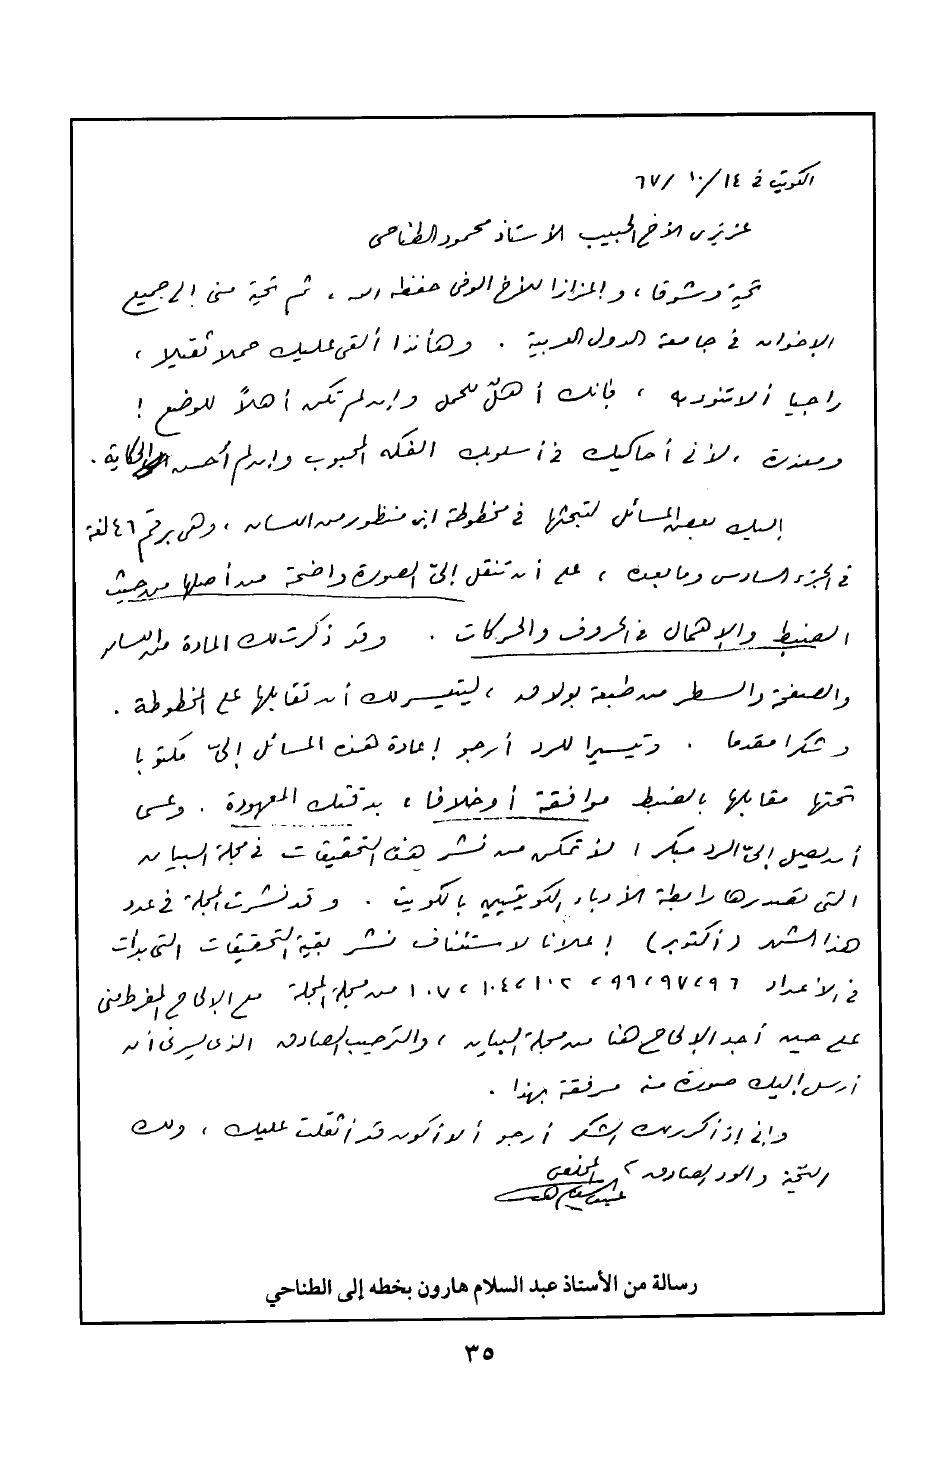 الكويت فى ١٤/١٠/٦٧
عزيزى الأخ الحبيب الأستاذ محمود الطناحى
تحية وشوقا، وإعزازا للأخ الوفى حفظه الله، ثم تحية منى إلى جميع
الإخوان فى جامعة الدول العربية. وهأنذا ألقى عليك حملا ثقيلا،
راجيا ألا تنوء به، فإنك أهلٌ للحمل وإن لم تكن أهلاً للوضع!
ومعذرة، لأنى أحاكيك فى أسلوبك الفكه المحبوب وإن لم أحسن الحكاية.
إليك بعض المسائل لتبحثها فى مخطوطة ابن منظور من اللسان، وهى برقم ٤٦ لغة
فى الجزء السادس وما بعده، على أن تنقل إلىّ الصورة واضحة من أصلها من حيث
الضبط والإهمال فى الحروف والحركات. وقد ذكرت لك المادة من اللسان
والصفحة والسطر من طبعة بولاق، ليتيسر لك أن تقابلها على المخطوطة.
وشكرا مقدما. وتيسيرا للرد أرجو إعادة هذه المسائل إلىّ مكتوبا
تحتها مقابلها بالضبط موافقة أو خلافا، بدقتك المعهودة. وعسى
أن يصل إلىّ الرد مبكرا لأتمكن من نشر هذه التحقيقات فى مجلة البيان
التى تصدرها رابطة الأدباء الكويتيين بالكويت. وقد نشرت المجلة فى عدد
هذا الشهر (أكتوبر) إعلانا لاستئناف نشر بقية التحقيقات التى بدأت
فى الأعداد ٩٦، ٩٧، ٩٩، ١٠٢، ١٠٤، ١٠٧ من مجلة المجلة مع الإلحاح المفرط منى
على حين أجد الإلحاح هنا من مجلة البيان، والترحيب الصادق الذى يسرنى أن
أرسل إليك صورة منه مرفقة بهذا.
وإنى إذ أكرر لك الشكر أرجو ألا أكون قد أثقلت عليك، ولك
التحية والود الصادق،
المخلص
عبد السلام هارون
رسالة من الأستاذ عبد السلام هارون بخطه إلى الطناحي
٣٥